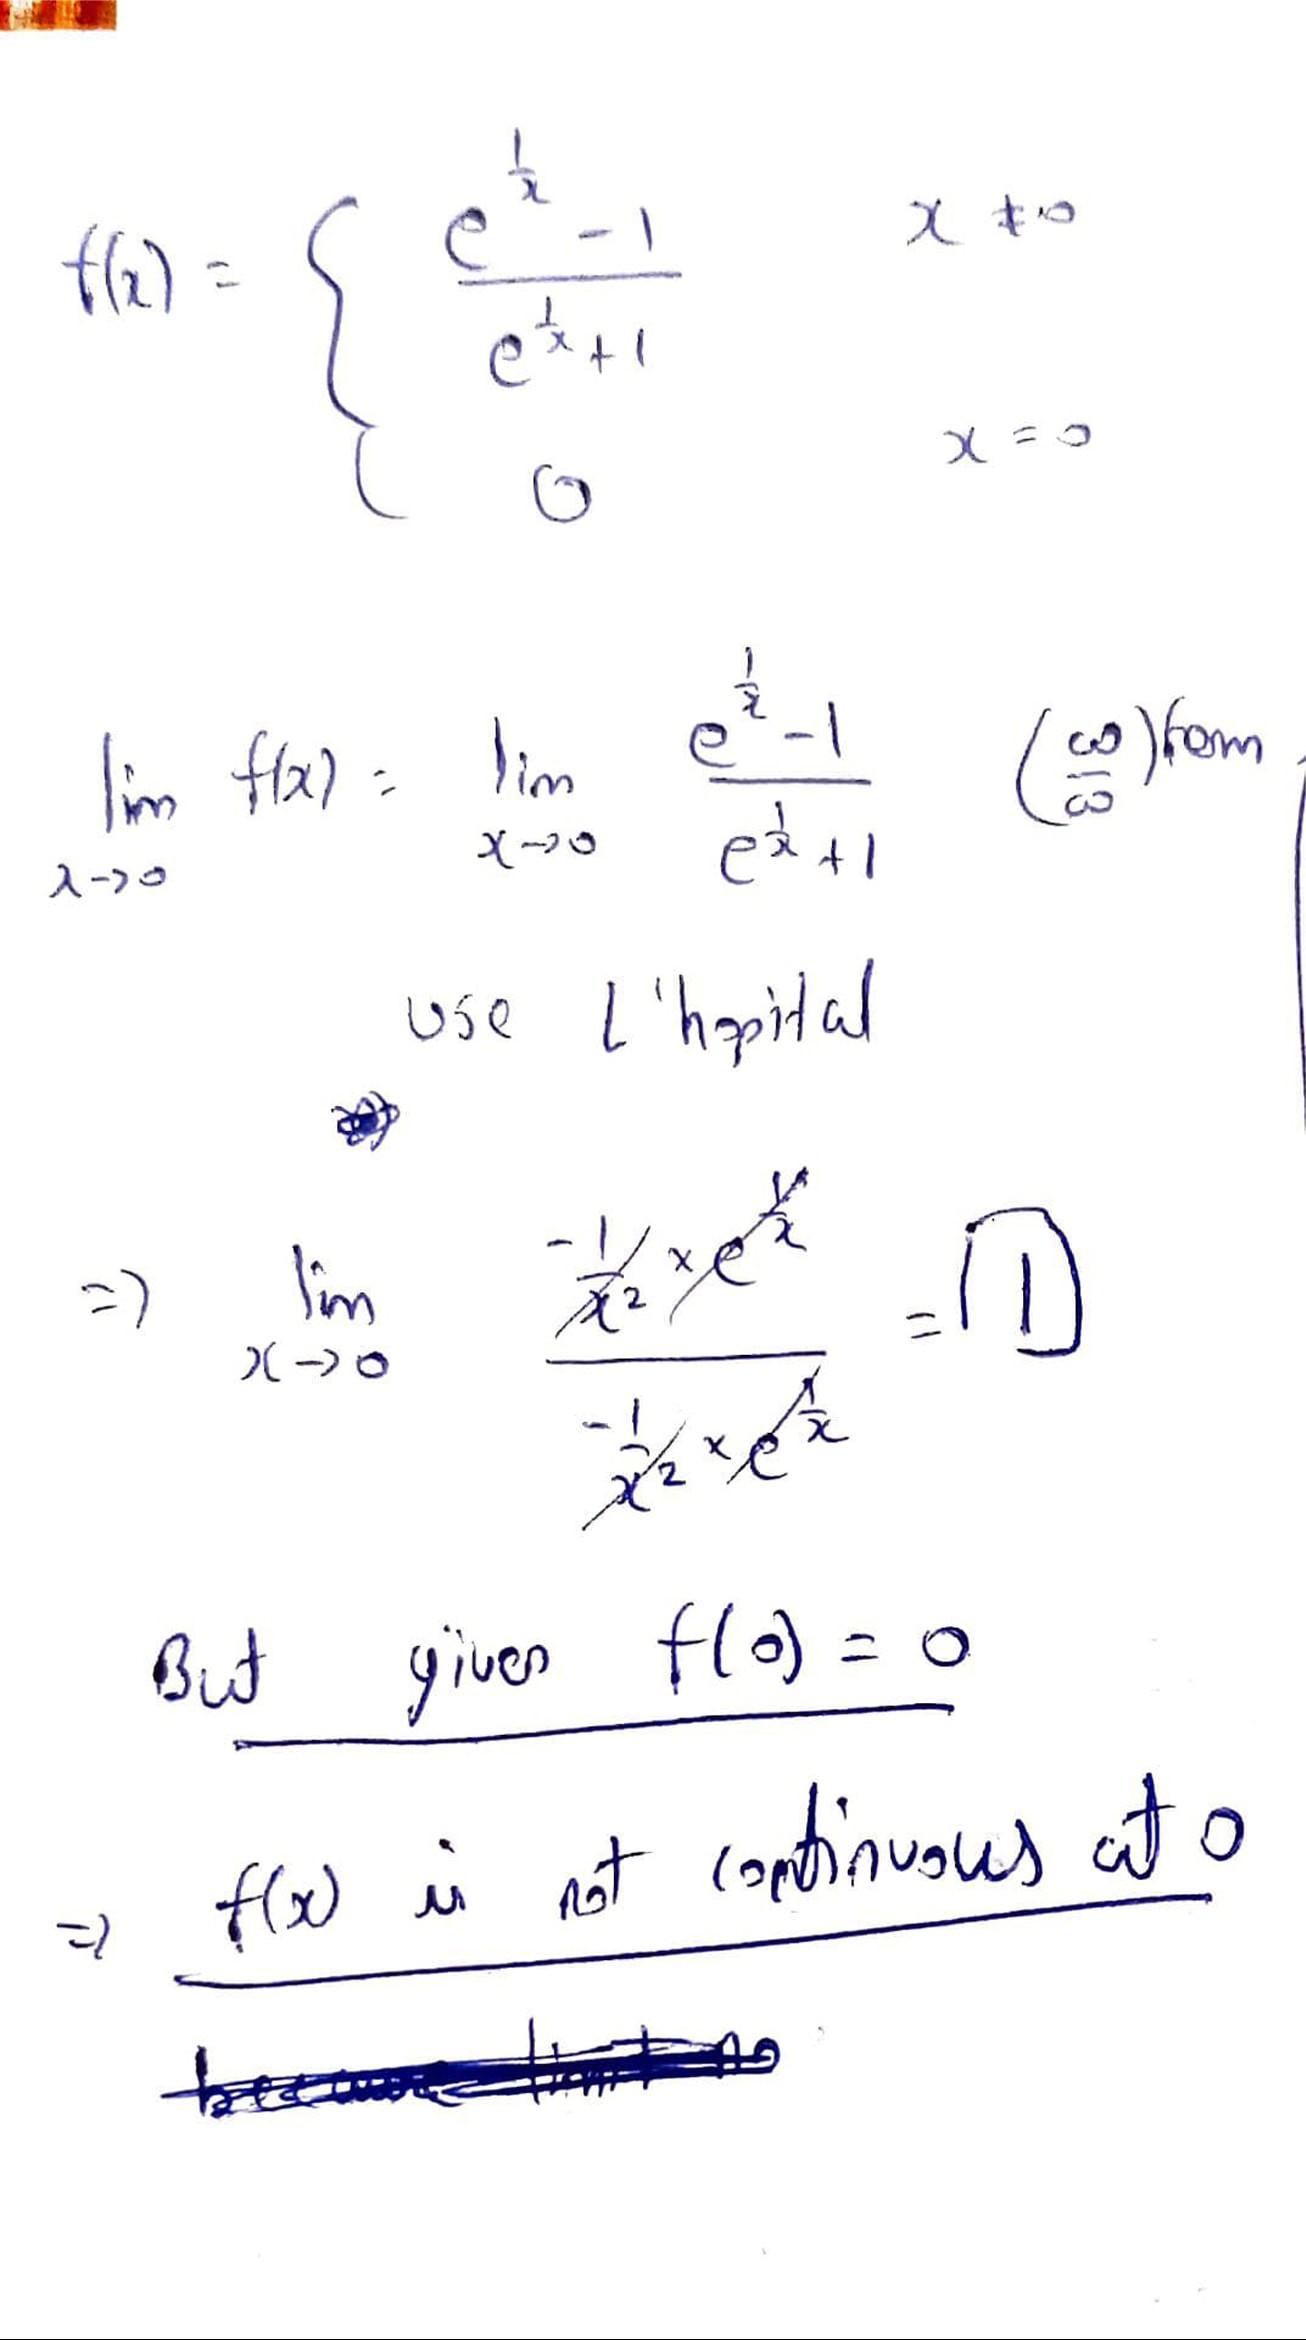 f(x) = { (e^(1/x) - 1) / (e^(1/x) + 1)    x ≠ 0
0    x = 0
lim x→0 f(x) = lim x→0 (e^(1/x) - 1) / (e^(1/x) + 1)    (∞/∞) form
use L'hopital
=> lim x→0 (-1/x² × e^(1/x)) / (-1/x² × e^(1/x)) = 1
But given f(0) = 0
=> f(x) is not continuous at 0